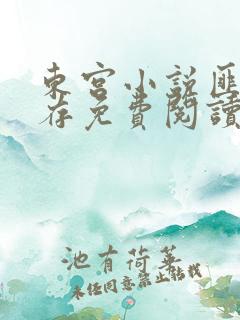 東宮小說匪
存免費閱讀
池有荷華
未经同意禁止转载